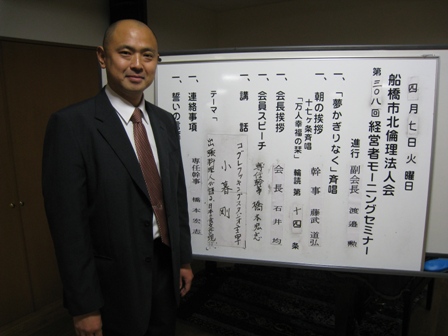 四月七日 火曜日
船橋市北倫理法人会
第三〇八回 経営者モーニングセミナー
進行 副会長 渡邉 勲
一、「夢かぎりなく」斉唱
一、朝の挨拶 幹事 藤武 道弘
十七ヶ条斉唱
「万人幸福の栞」 輪読 第十四条
一、会長挨拶 会長 石井 均
一、会員スピーチ 専任幹事 橋本 宏志
一、講話
小喜 剛
テーマ「
一、連絡事項 専任幹事 橋本 宏志
一、誓いの